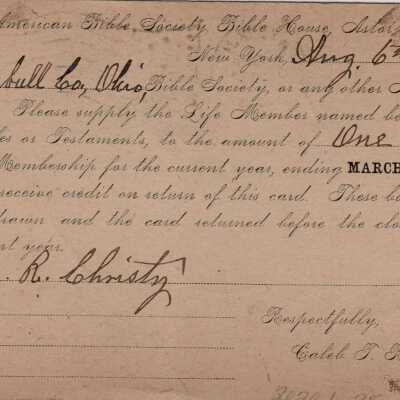 American Bible Society, Bible House, Astor
New York, Aug. 6th
bull Co, Ohio, Bible Society, or any other
Please supply the Life Member named be
es or Testaments, to the amount of One
Membership for the current year, ending MARCH
receive credit on return of this card. These bo
drawn and the card returned before the clo
nt year.
R. Christy
Respectfully,
Caleb T. R